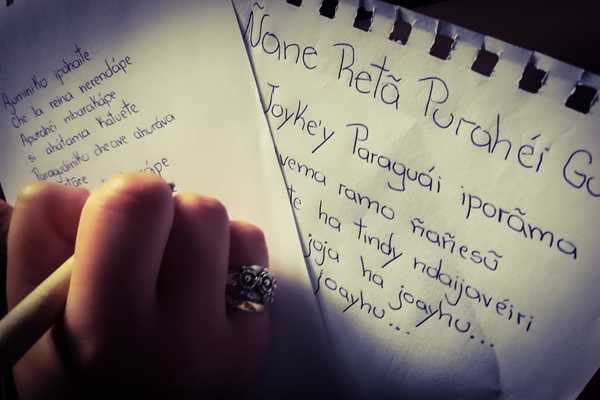 Ayminiko ipahaite
Che la reina nerendápe
Apurahéi mbarakápe
si ahátama katuete
Paraguáýniko che ave ahoráva
Ñane Retã Purahéi Gu
Joyke'y Paraguái iporãma
vema ramo ñañesũ
te ha tindy ndaijavéiri
joja ha joayhu...
joayhu...